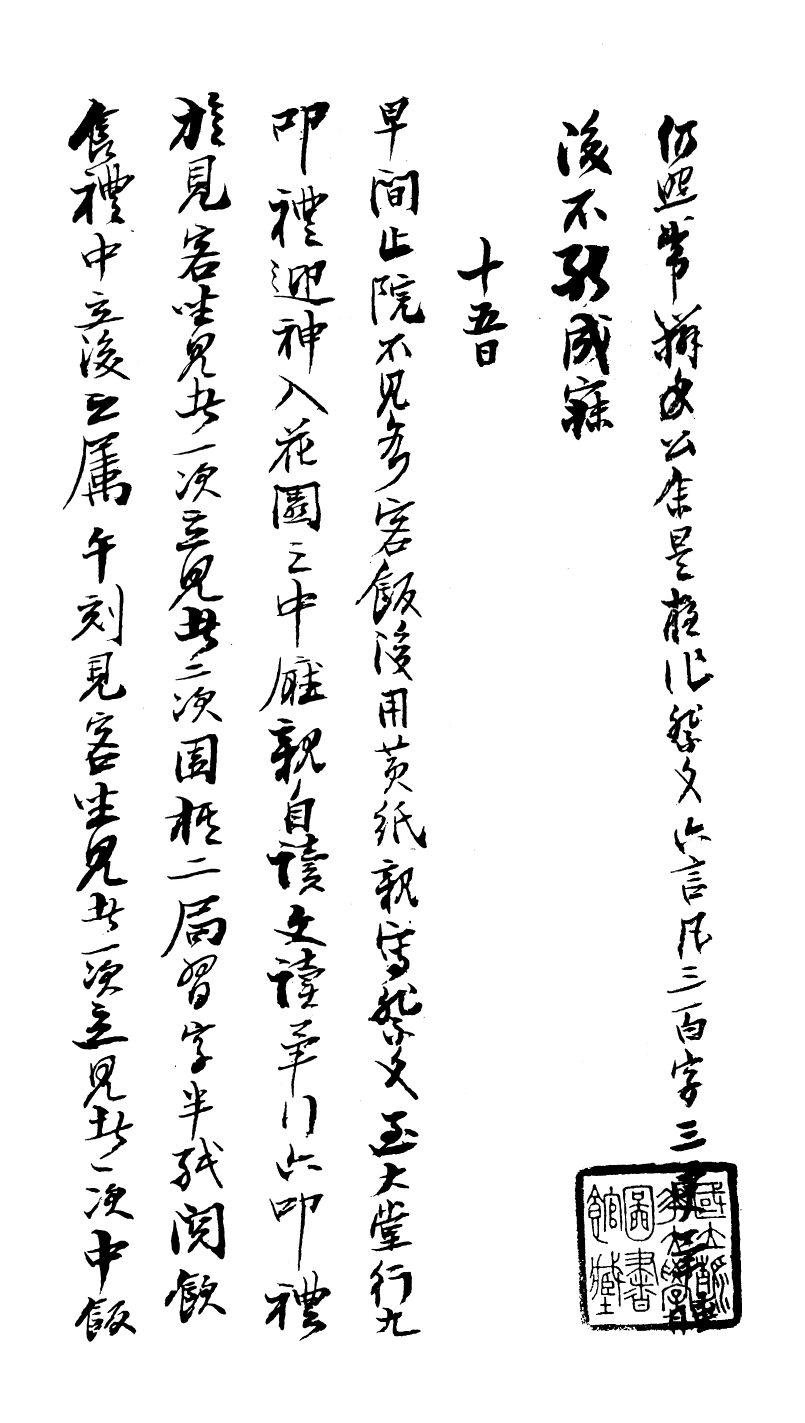 仍照常辦公是夜作祭文六言凡三百字三
後不能成寐
十五日
早間止院不見各客飯後用黃紙親寫祭文至大堂行九
叩禮迎神入花園之中廳親自讀文讀畢行六叩禮
旋見客坐見者一次立見者二次圍棋二局習字半紙閱飲
食禮中立後之属午刻見客坐見者一次立見者一次中飯
國立
圖書
館藏